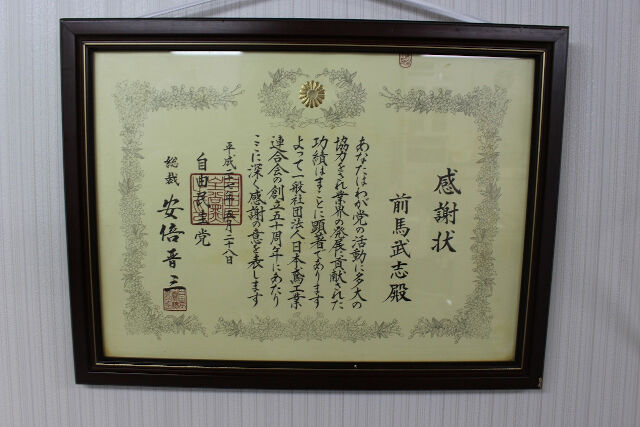 感謝状
前馬武志殿
あなたはわが党の活動に多大の
協力をされ業界の発展に貢献された
功績はまことに顕著であります
よって一般社団法人日本鳶工業
連合会の創立五十周年にあたり
ここに深く感謝の意を表します
平成二十七年五月二十八日
自由民主党
総裁 安倍晋三